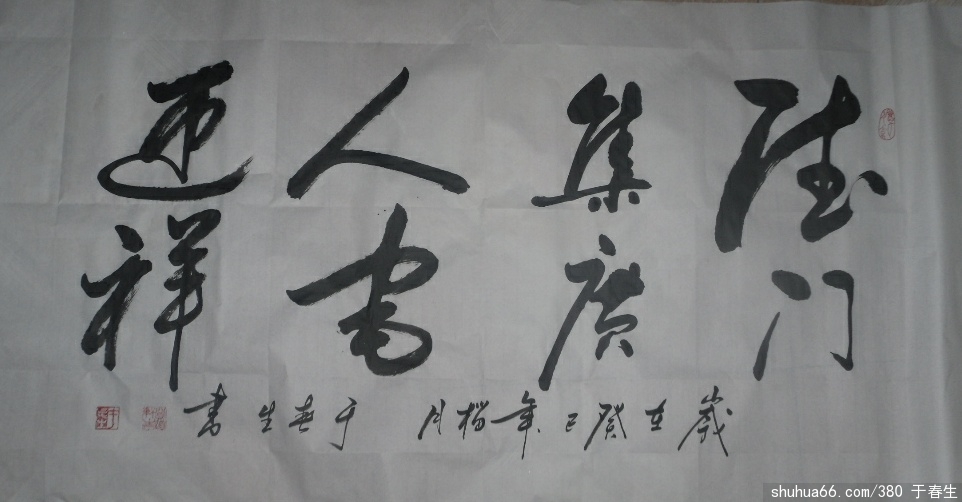 德门
集慶
人宅
迎祥
歲在癸巳年榴月 于春生書
shuhua66.com/380 于春生